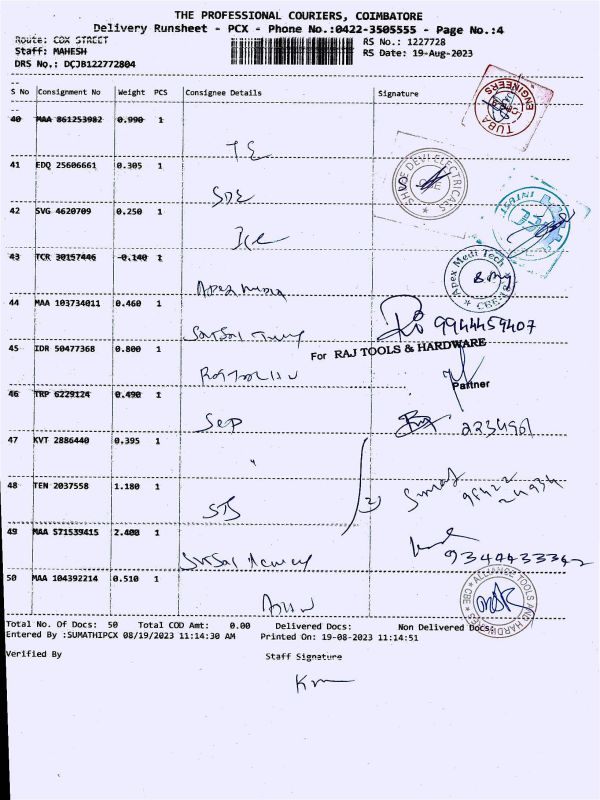 THE PROFESSIONAL COURIERS, COIMBATORE
Delivery Runsheet - PCX - Phone No.:0422-3505555 - Page No.:4
Route: COX STREET
RS No.: 1227728
Staff: MAHESH
RS Date: 19-Aug-2023
DRS No,: DCJB122772804
S No Consignment No Weight PCS Consignee Details Signature
40 MAA 861253982 0.990 1
TUBA ENGINEERS CBE
TE
41 EDQ 25606661 0.305 1
SHREE DEVI ELECTRICALS
SDE
42 SVG 4620709 0.250 1
ICE
43 TCR 30157446 -0.140 1
Apex Medi Tech CBE
Apex
44 MAA 103734011 0.460 1
9944459407
45 IDR 50477368 0.800 1
For RAJ TOOLS & HARDWARE
Partner
46 TRP 6229124 0.490 1
Sep
2234961
47 KVT 2886440 0.395 1
"
48 TEN 2037558 1.180 1
STS
2
49 MAA 571539415 2.400 1
9344433342
50 MAA 104392214 0.510 1
ALLIANCE TOOLS AND HARDWARES CBE
Total No. Of Docs: 50 Total COD Amt: 0.00 Delivered Docs: Non Delivered Docs:
Entered By :SUMATHIPCX 08/19/2023 11:14:30 AM Printed On: 19-08-2023 11:14:51
Verified By Staff Signature